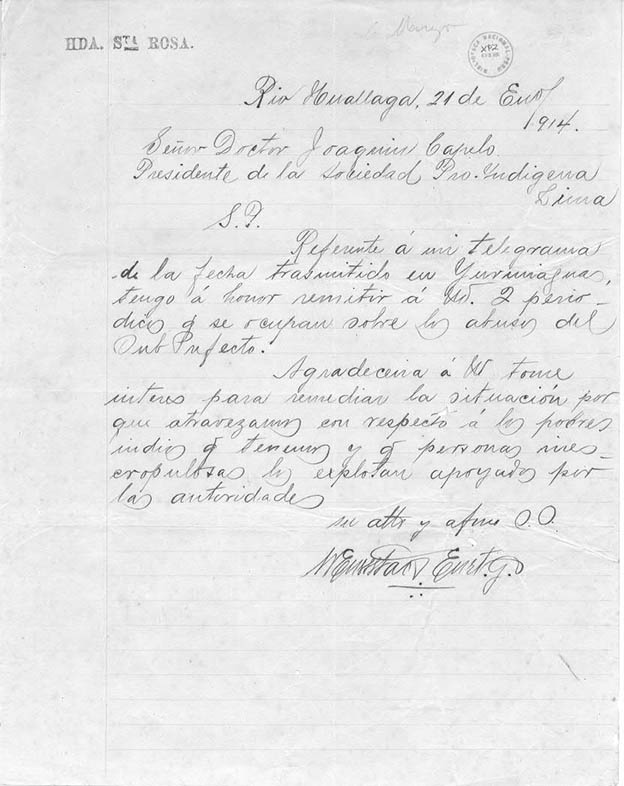 HDA. STA ROSA.
BIBLIOTECA NACIONAL PERU
Rio Huallaga, 21 de Eno/
1914.
Señor Doctor Joaquin Capelo
Presidente de la Sociedad Pro. Indigena
Lima
S. P.
Referente á mi telegrama
de la fecha trasmitido en Yurimaguas,
tengo á honor remitir á Ud. 2 perio-
dicos q se ocupan sobre los abusos del
Sub Prefecto.
Agradeceria á Ud tome
interes para remediar la situación por
que atravezamos con respecto á los pobres
indios q tenemos y q personas ines-
cropulosas los explotan apoyados por
las autoridades
su atto y afmo